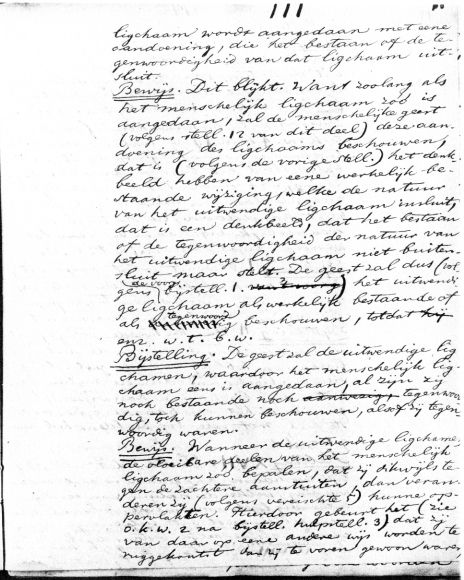 111
ligchaam wordt aangedaan met eene
aandoening, die het bestaan of de te-
genwoordigheid van dat ligchaam uit-
sluit.
Bewijs. Dit blijkt. Want zoolang als
het menschelijk ligchaam zoo is
aangedaan, zal de menschelijke geest
(volgens stell. 12 van dit deel) deze aan-
doening des ligchaams beschouwen,
dat is (volgens de vorige stell.) het denk-
beeld hebben van eene werkelijk be-
staande wijziging, welke de natuur
van het uitwendige ligchaam insluit,
dat is een denkbeeld, dat het bestaan
of de tegenwoordigheid der natuur van
het uitwendige ligchaam niet buiten-
sluit maar stelt. De geest zal dus (vol-
gens de voorg. bijstell. 1.) het uitwendi-
ge ligchaam als werkelijk bestaande of
als tegenwoordig beschouwen, totdat hij
enz. w. t. b. w.
Bijstelling. De geest zal de uitwendige lig
chamen, waardoor het menschelijk lig-
chaam eens is aangedaan, al zijn zij
noch bestaande noch aanwezig, tegenwoor
dig, toch kunnen beschouwen, alsof zij tegen
woordig waren.
Bewijs. Wanneer de uitwendige ligchame,
de vloeibare deelen van het menschelijk
ligchaam zoo bepalen, dat zij dikwijls te-
gen de zachtere aanstuiten, dan veran-
deren zij (volgens vereischte 5) hunne op-
pervlakten. Hierdoor gebeurt het (zie
o. k. w. 2 na bijstell. hulpstell. 3) dat zij
van daar op eene andere wijs worden te-
ruggekaatst dan zij te voren gewoon waren,